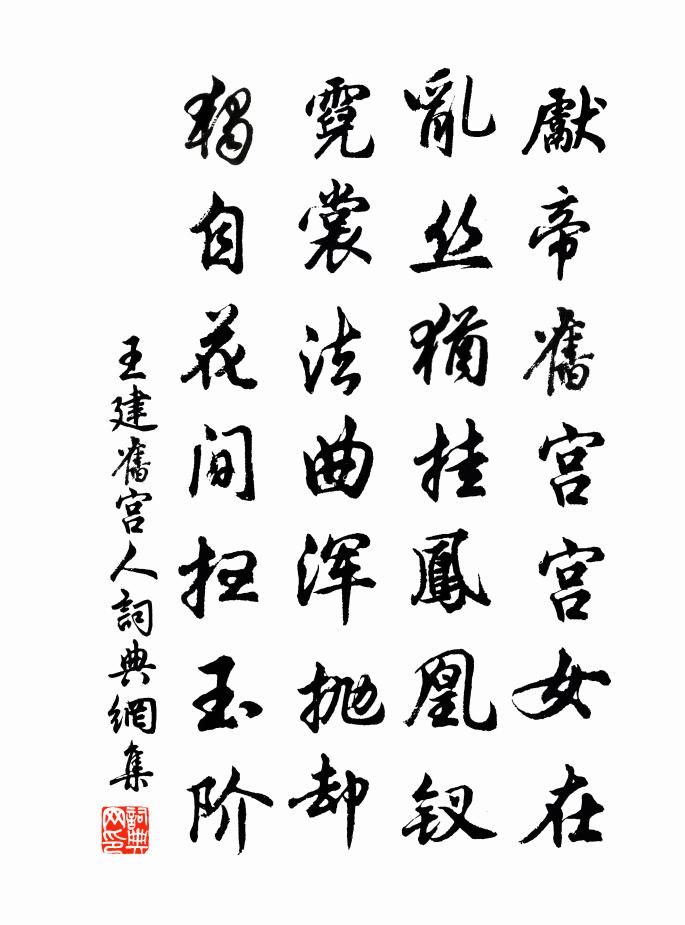 獻帝舊宫宫女在
亂丝猶挂鳳凰钗
霓裳法曲浑抛却
獨自花间扫玉阶
王建舊宫人詞典網集
詞典网印